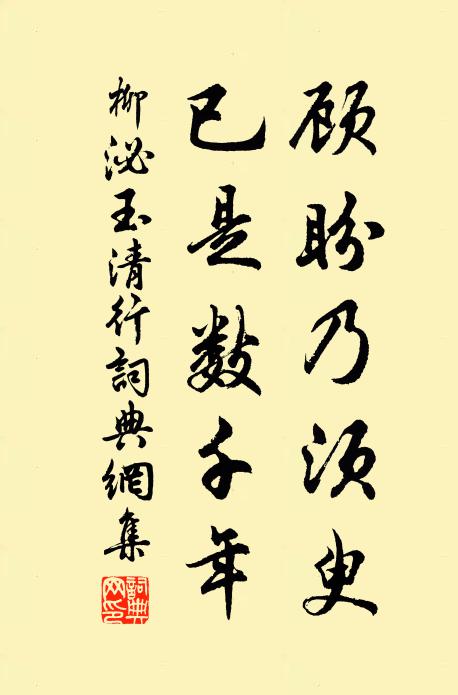 顾盼乃须臾
已是数千年
柳泌玉清行詞典網集
詞典網印